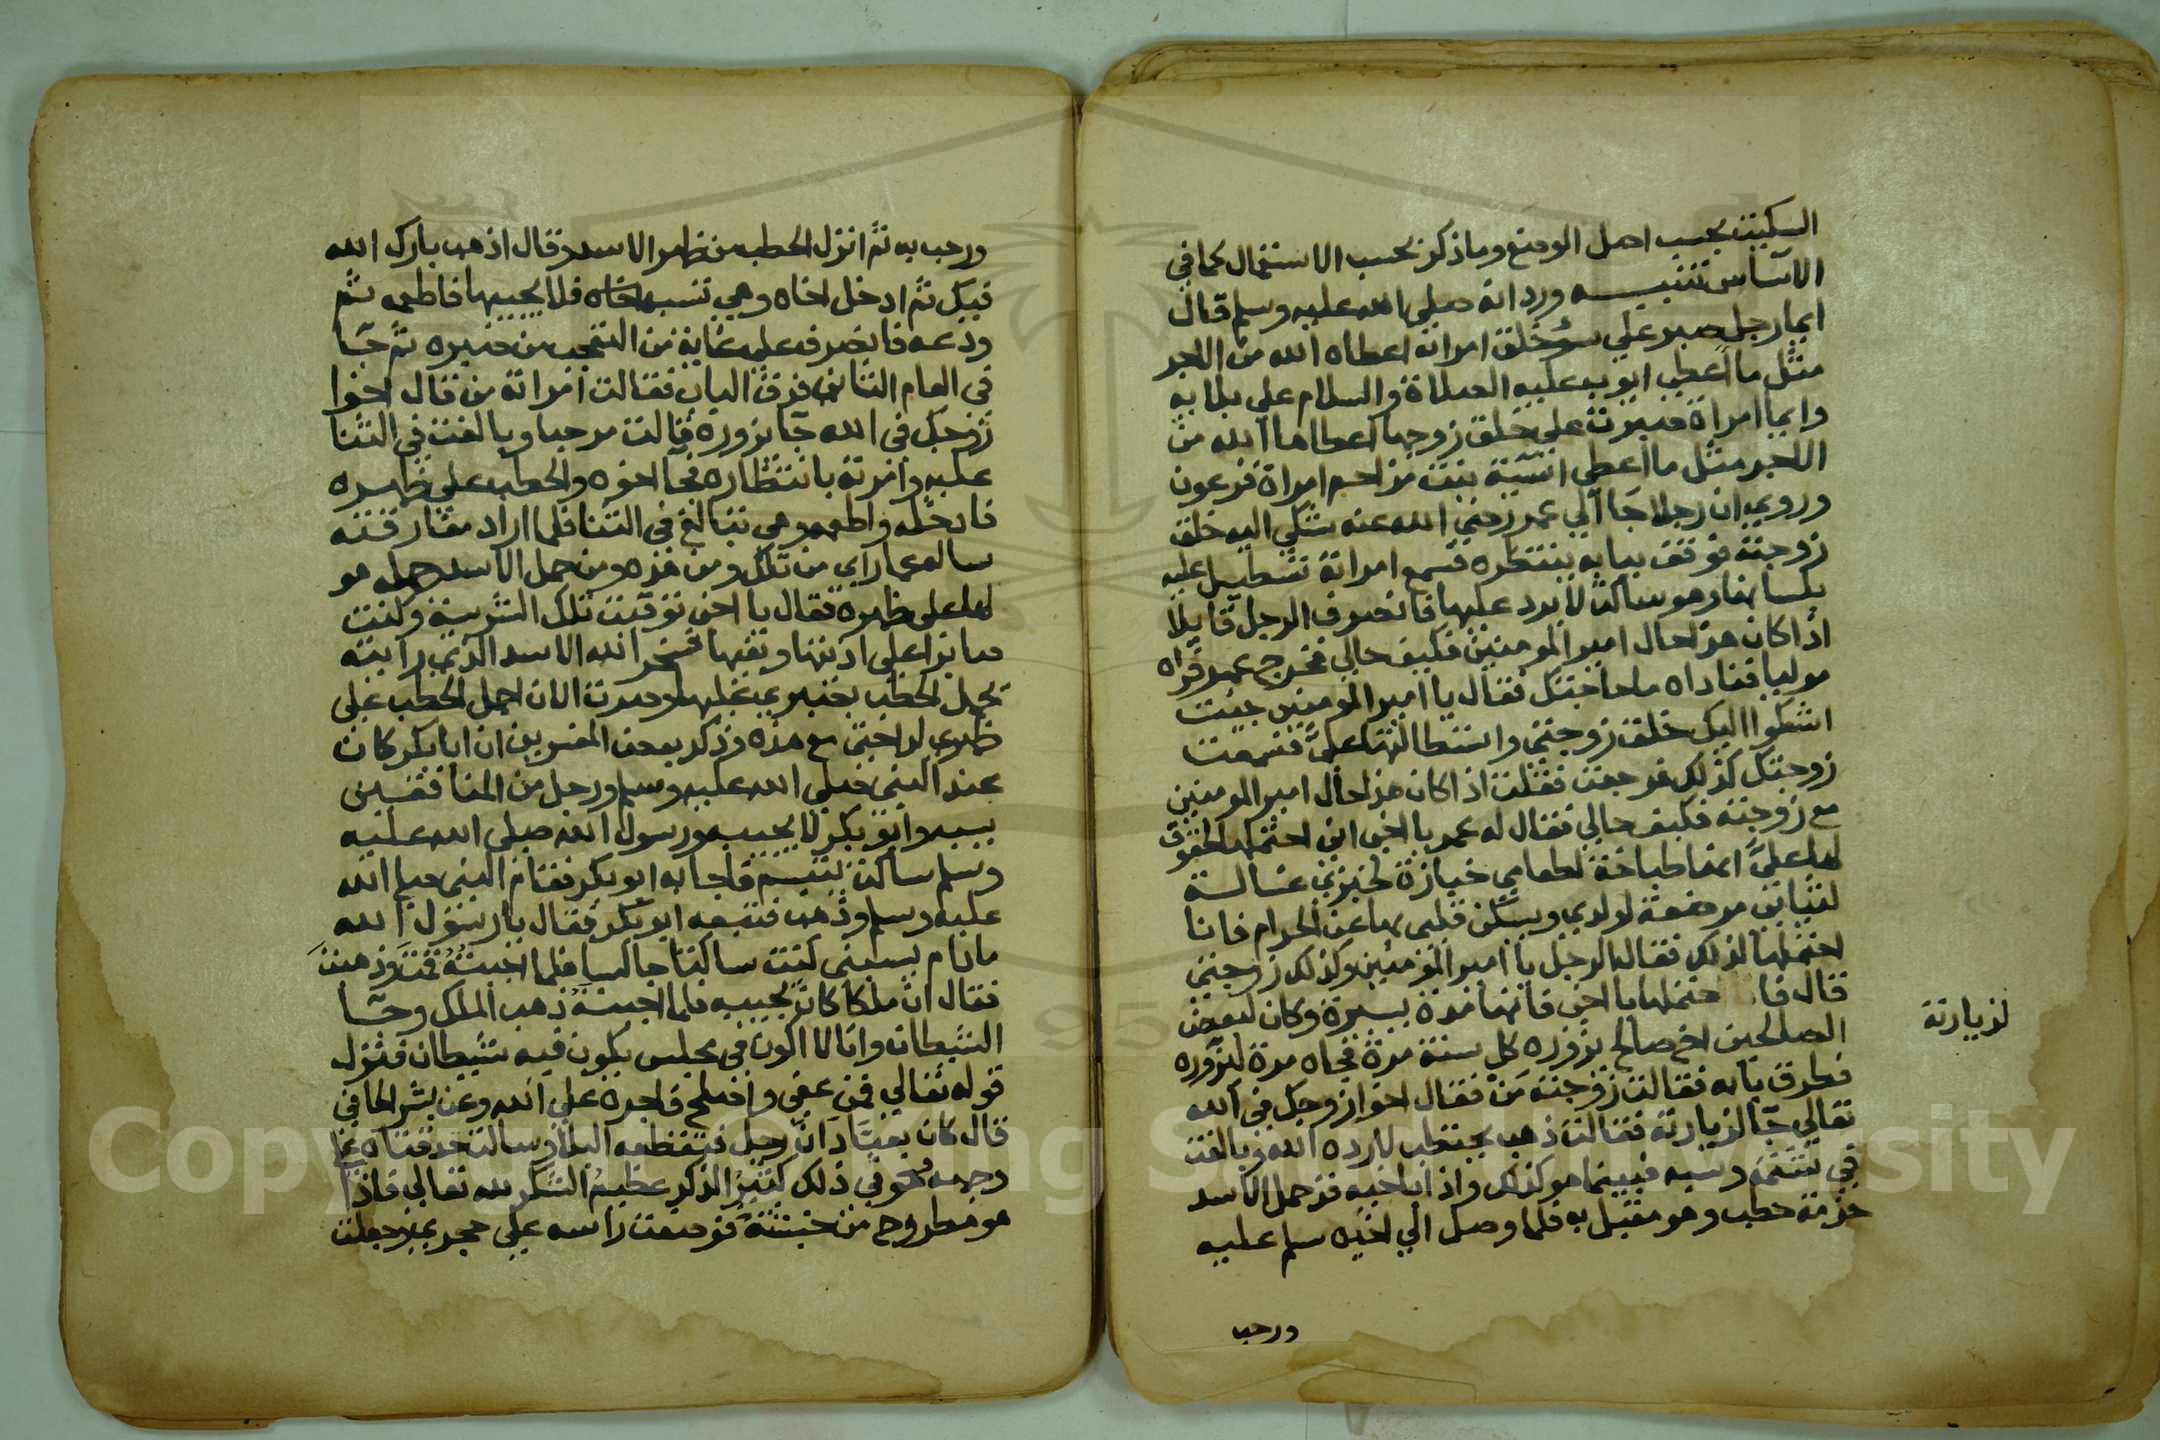 السكينة بحسب اصل الوضع وماذكر بحسب الاستعمال كما في
الاساس تنبيه ورد انه صلي الله عليه وسلم قال
ايما رجل صبر علي سؤ خلق امراته اعطاه الله من الاجر
مثل ما اعطي ايوب عليه الصلاة والسلام علي بلايه
وايما امراة صبرت علي خلق زوجها اعطاها الله من
الاجر مثل ما اعطي اسية بنت مزاحم امراة فرعون
وروي ان رجلا جا الي عمر رضي الله عنه يشكي اليه خلق
زوجته فوقف ببابه ينتظره فسمع امراته تستطيل عليه
بلسانها وهو ساكت لا يرد عليها فانصرف الرجل قايلا
اذا كان هذا حال امير المومنين فكيف حالي فخرج عمر فراه
موليا فناداه ما حاجتك فقال يا امير المومنين جيت
اشكوا اليك خلق زوجتي واستطالتها علي فسمعت
زوجتك كذلك فرجعت فقلت اذا كان هذا حال امير المومنين
مع زوجته فكيف حالي فقال له عمر يا اخي اني احتملها لحقوق
لها علي انها طباخة لطعامي خبازة لخبزي غسالة
لثيابي مرضعة لولدي ويسكن قلبي بها عن الحرام فانا
احتملها لذلك فقال الرجل يا امير المومنين وكذلك زوجتي
قال فا حتملها يا اخي فانها مدة يسيرة وكان لبعض
الصالحين اخ صالح يزوره كل سنة مرة فجاه مرة لزوره
لزيارته
فطرق بابه فقالت زوجته من فقال اخوا زوجك في الله
تعالي جا لزيارته فقالت ذهب يحتطب لا رده الله وبالغت
في شتمه وسبه فبينما هو كذلك واذا باخيه قد حمل الاسد
حزمة حطب وهو مقبل به فلما وصل الي اخيه سلم عليه
ورحب
ورحب به ثم انزل الحطب من ظهر الاسد وقال اذهب بارك الله
فيك ثم ادخل اخاه وهي تسبه اخاه فلا يجيبها فاطعمه ثم
ودعه فانصرف علي غاية من التعجب من صبره ثم جا
في العام الثاني فدق الباب فقالت امراته من قال اخوا
زوجك في الله جا يزوره قالت مرحبا وبالغت في الثنا
عليه وامرته بانتظاره فجا اخوه والحطب علي ظهره
فادخله واطعمه وهي تبالغ في الثنا فلما اراد مفارقته
ساله عما راي من تلك ومن هذه ومن حمل الاسد حطبه هو
لها علي ظهره فقال يا اخي توفيت تلك الشرسة وكنت
صابرا علي اذيتها وتعبها فسخر الله الاسد الذي رايته
يحمل الحطب بصبري عليها وصرت الان احمل الحطب علي
ظهري لراحتي مع هذه وذكر بعض المفسرين ان ابا بكر كان
عند النبي صلي الله عليه وسلم ورجل من المنافقين
يسبه وابو بكر لا يجيبه ورسول الله صلي الله عليه
وسلم ساكت يتبسم فاجابه ابو بكر فقام النبي صلي الله
عليه وسلم وذهب فتبعه ابو بكر فقال يا رسول الله
مادام يسبني كنت ساكتا جالسا فلما اجبته قمت وذهبت
فقال ان ملكا كان يجيبه فلما اجبته ذهب الملك وجا
الشيطان وانا لا اكون في مجلس يكون فيه شيطان فنزل
قوله تعالي فمن عفي واصلح فاجره علي الله وعن بشر الحافي
قال كان بعبادان رجل قد قطعه البلا وسالت حدقتاه علي
وجهه وهو في ذلك كثير الذكر عظيم الشكر لله تعالي فاذا
هو مطروح من خبثته فوضعت راسه علي حجري وجعلت